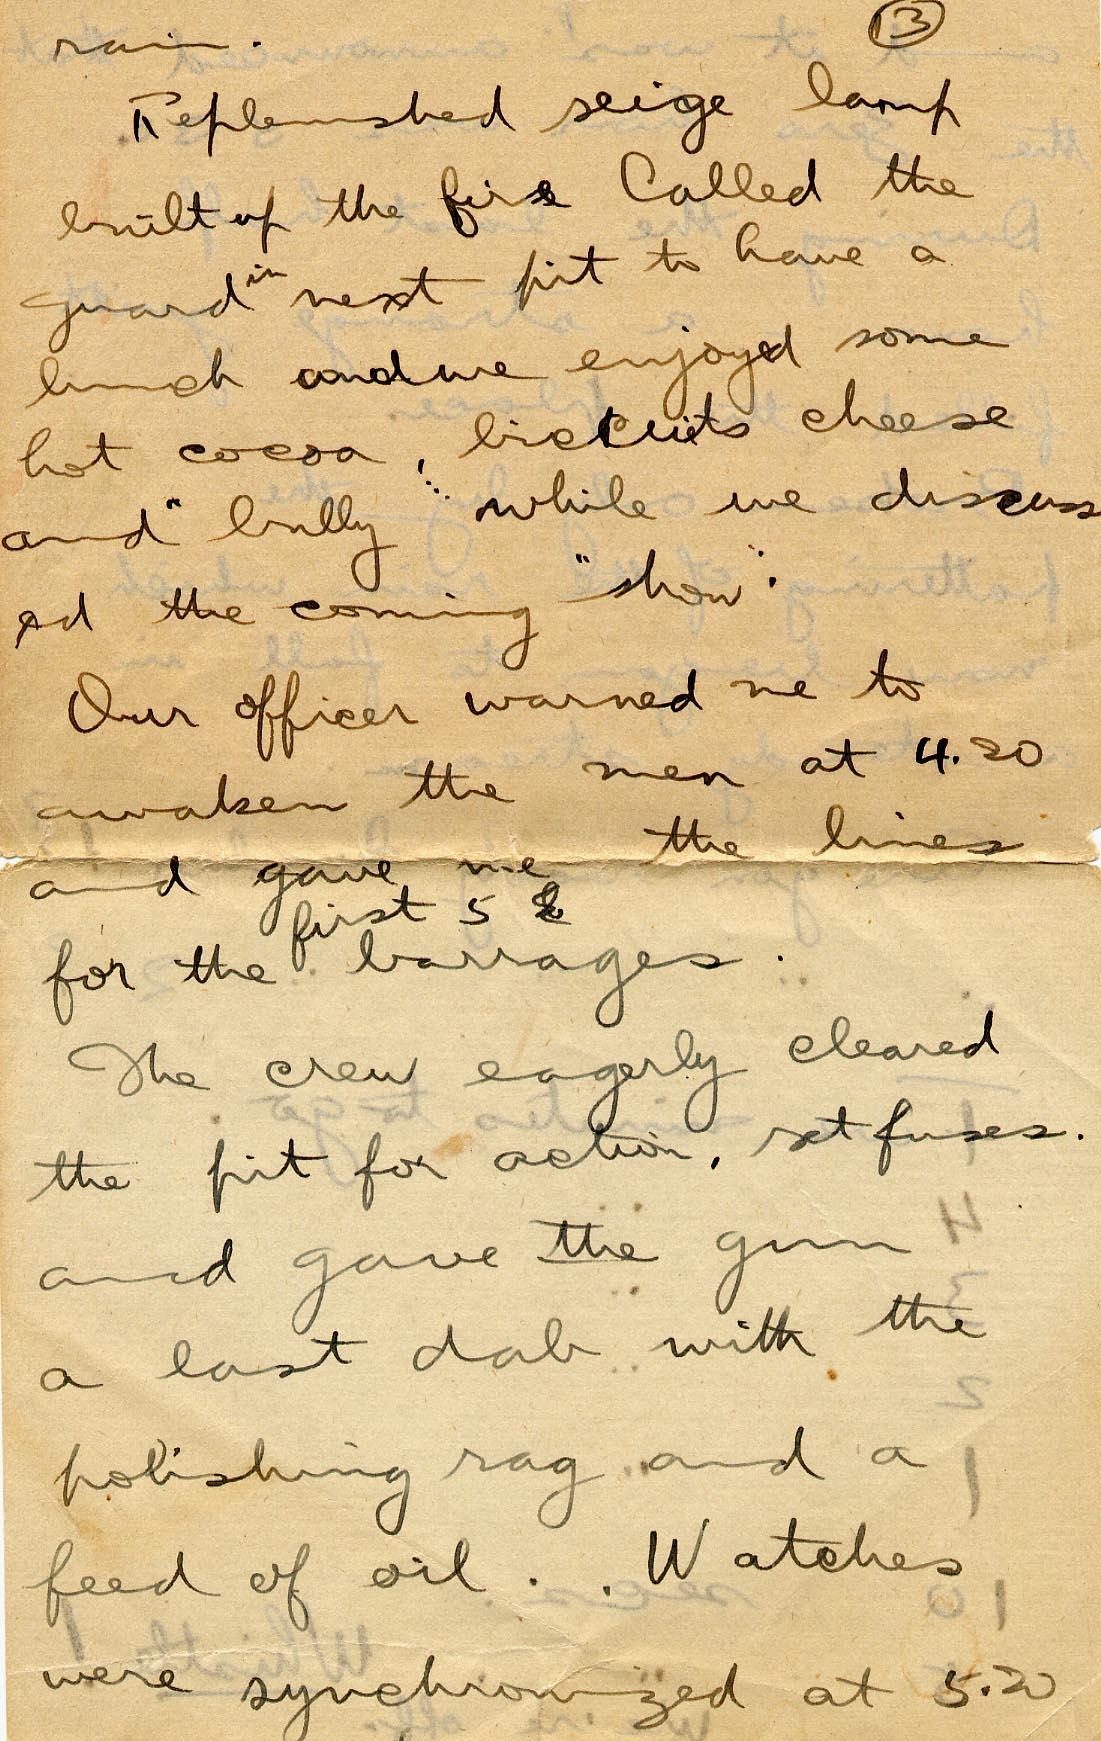 13
rain.
Replenished seige lamp
built up the fire Called the
guard in next pit to have a
lunch and we enjoyed some
hot cocoa, biscuits cheese
and "bully" while we discuss
ed the coming "show".
Our officer warned me to
awaken the men at 4.20
and gave me the lines
first 5
for the barrages.
The crew eagerly cleared
the pit for action, set fuses.
and gave the gun
a last dab with the
polishing rag and a
feed of oil. . Watches
were synchronized at 5.20